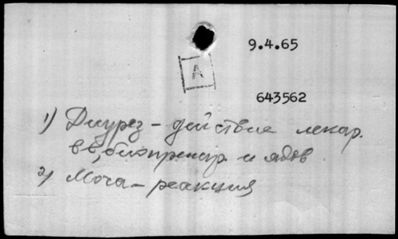 9.4.65
А
643562
1) Диурез – действие лекар.
в-в, биопрепар. и ядов
2) Моча – реакция